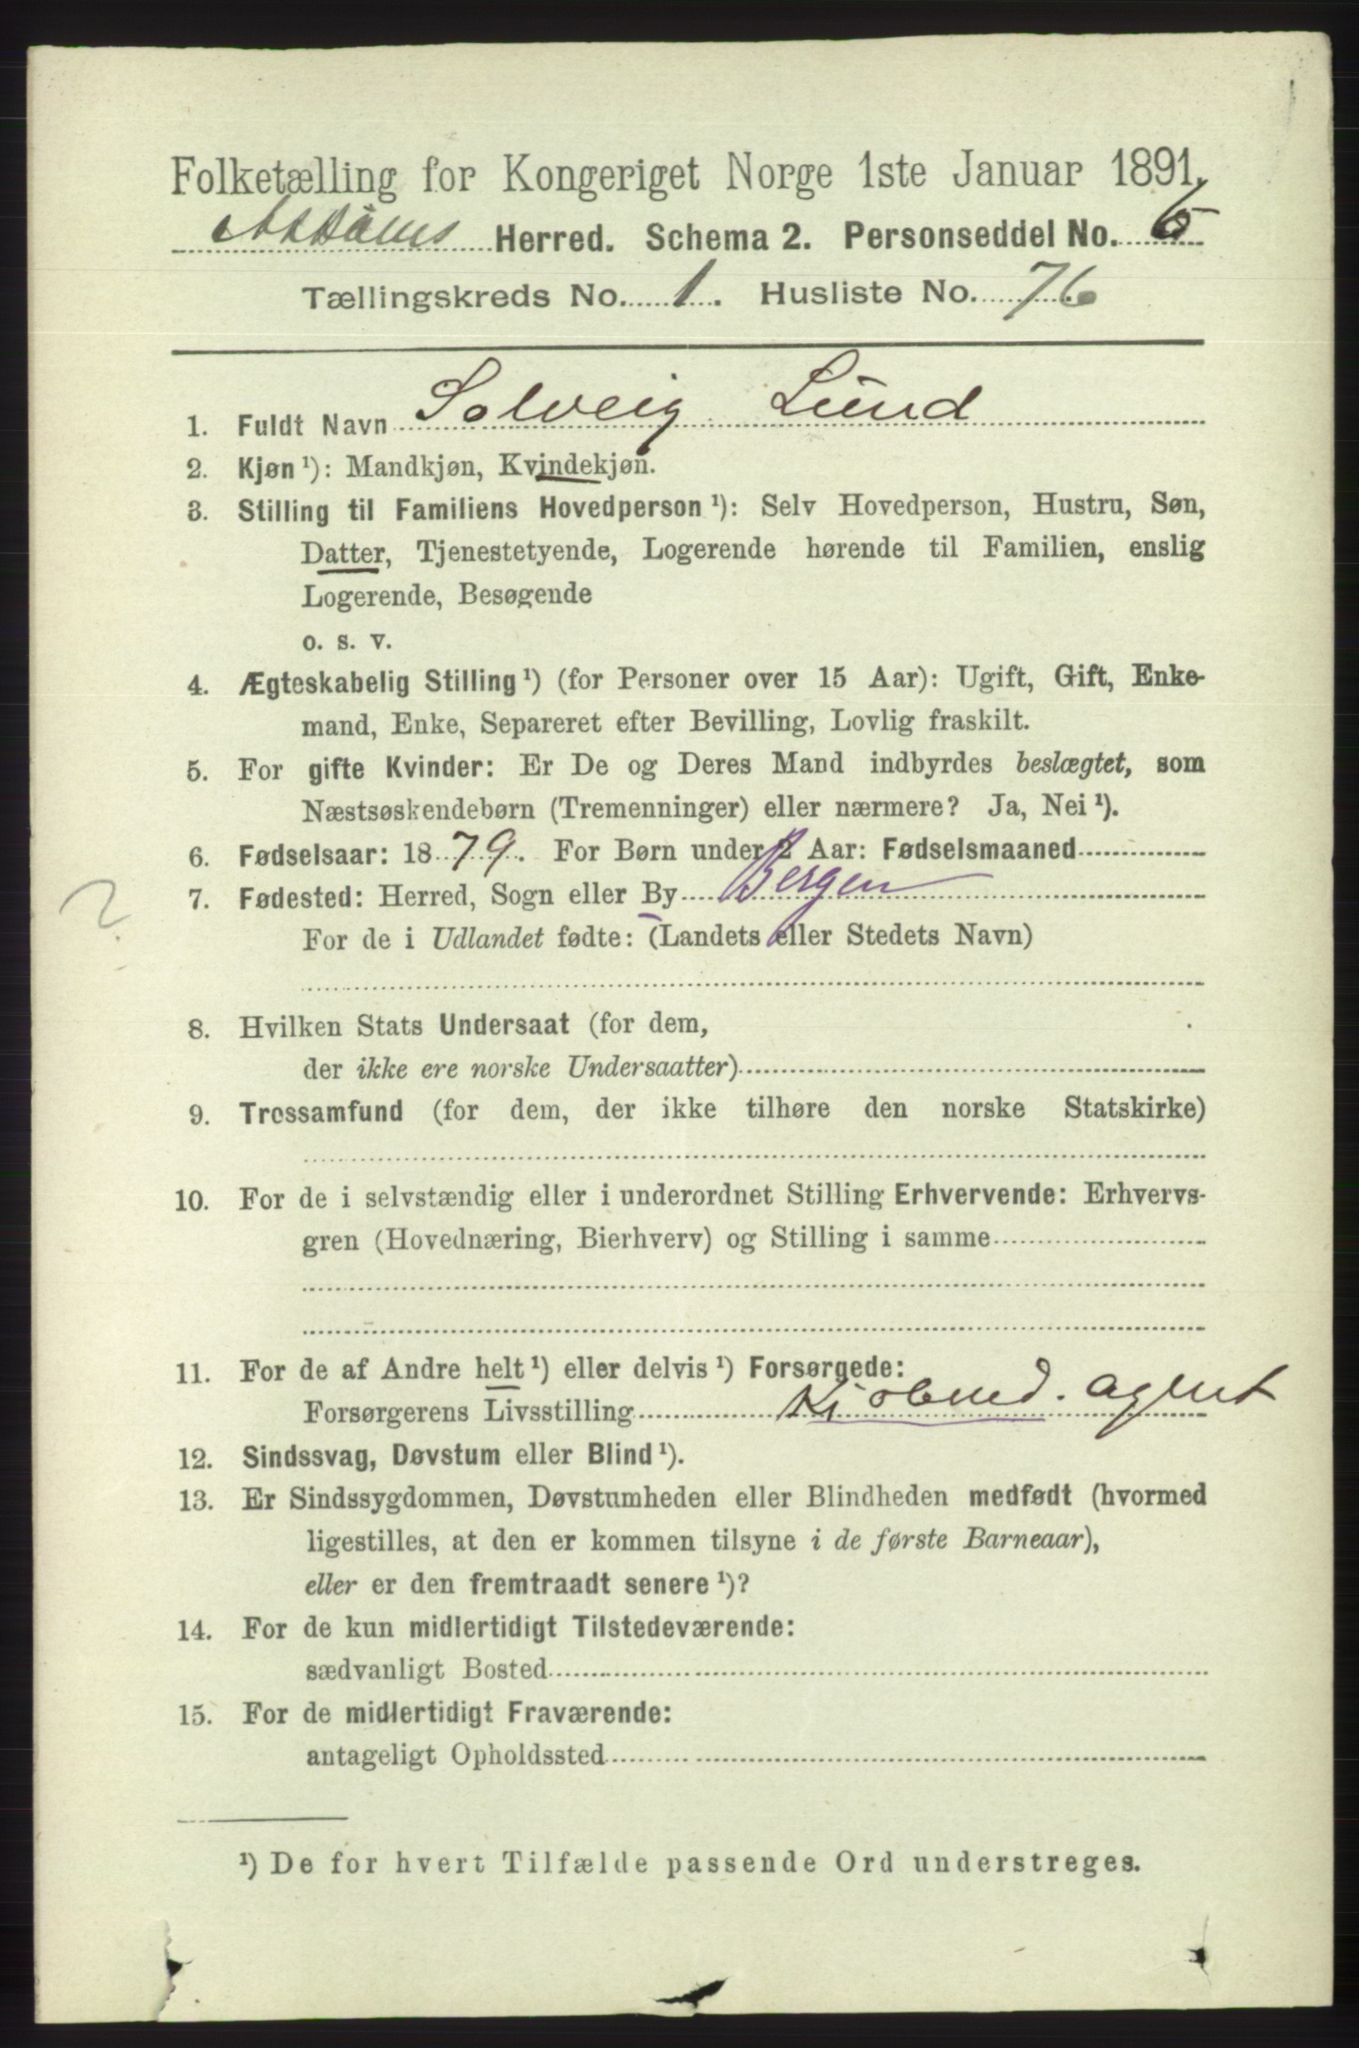 Folketælling for Kongeriget Norge 1ste Januar 1891.
Askøens Herred. Schema 2. Personseddel No. 6
Tællingskreds No. 1. Husliste No. 76
1. Fuldt Navn Solveig Lund
2. Kjøn ¹): Mandkjøn, Kvindekjøn.
3. Stilling til Familiens Hovedperson ¹): Selv Hovedperson, Hustru, Søn,
Datter, Tjenestetyende, Logerende hørende til Familien, enslig
Logerende, Besøgende
o. s. v.
4. Ægteskabelig Stilling ¹) (for Personer over 15 Aar): Ugift, Gift, Enke-
mand, Enke, Separeret efter Bevilling, Lovlig fraskilt.
5. For gifte Kvinder: Er De og Deres Mand indbyrdes beslægtet, som
Næstsøskendebørn (Tremenninger) eller nærmere? Ja, Nei ¹).
6. Fødselsaar: 1879. For Børn under 2 Aar: Fødselsmaaned
7. Fødested: Herred, Sogn eller By Bergen
For de i Udlandet fødte: (Landets eller Stedets Navn)
8. Hvilken Stats Undersaat (for dem,
der ikke ere norske Undersaatter)
9. Trossamfund (for dem, der ikke tilhøre den norske Statskirke)
10. For de i selvstændig eller i underordnet Stilling Erhvervende: Erhvervs-
gren (Hovednæring, Bierhverv) og Stilling i samme
11. For de af Andre helt ¹) eller delvis ¹) Forsørgede:
Forsørgerens Livsstilling Kjøbmd. agent
12. Sindssvag, Døvstum eller Blind ¹).
13. Er Sindssygdommen, Døvstumheden eller Blindheden medfødt (hvormed
ligestilles, at den er kommen tilsyne i de første Barneaar),
eller er den fremtraadt senere ¹)?
14. For de kun midlertidigt Tilstedeværende:
sædvanligt Bosted
15. For de midlertidigt Fraværende:
antageligt Opholdssted
¹) De for hvert Tilfælde passende Ord understreges.